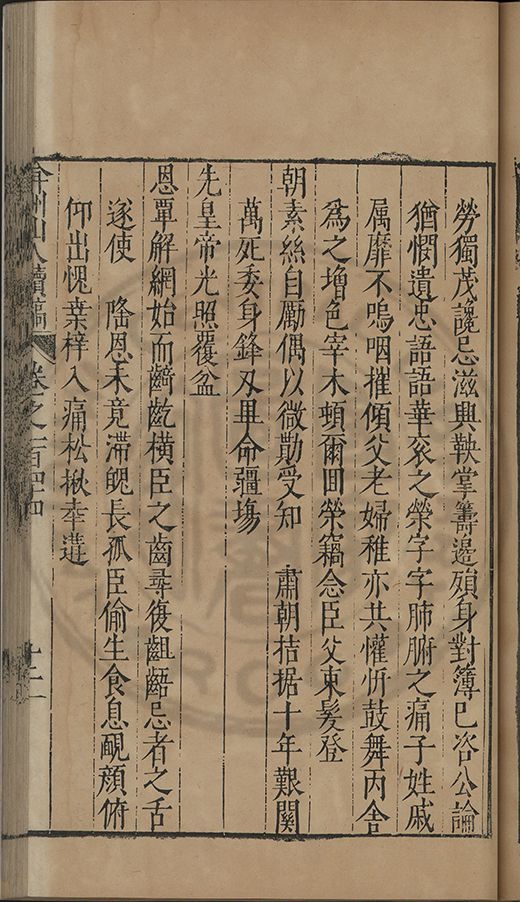 勞獨茂讒忌滋興鞅掌籌邊殞身對簿已咨公論
猶憫遺忠語語華衮之榮字字肺腑之痛子姓戚
属靡不嗚咽摧傾父老婦稚亦共懽忻鼓舞丙舎
爲之增色宰木頓爾回榮竊念臣父束髮登
朝素絲自厲偶以微勩受知 肅朝拮据十年艱關
萬死委身鋒刃畢命疆塲
先皇帝光照覆盆
恩覃解網始而齮齕橫臣之齒尋復齟齬忌者之舌
遂使 隆恩未竟滯魄長孤臣偷生食息靦顔俯
仰出愧桒梓入痛松楸幸遘
弇州山人續稿 卷之一百四十四